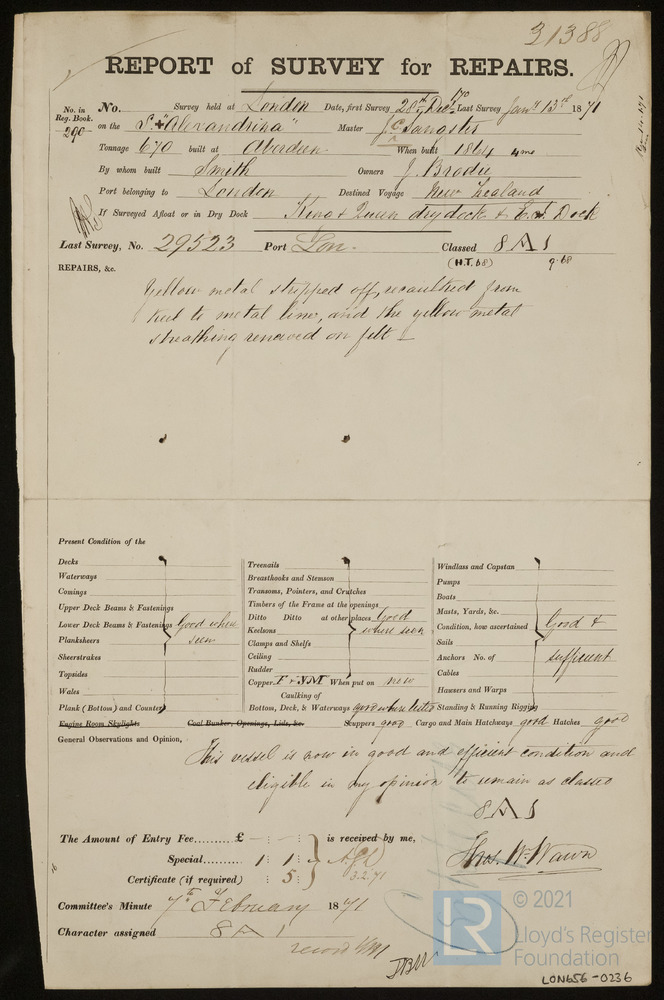 31388
REPORT of SURVEY for REPAIRS.
No. in Reg. Book. 290
No. Survey held at London Date, first Survey 28th Decr 1870 Last Survey Jany 13th 1871
on the S. "Alexandrina" Master J. C. Sangster
Tonnage 670 built at Aberdeen When built 1864 4 mo
By whom built Smith Owners J. Brodie
Port belonging to London Destined Voyage New Zealand
If Surveyed Afloat or in Dry Dock King & Queen dry dock & E. I. Dock
Last Survey, No. 29523 Port Lon. Classed 8 A 1
(H.T. 68) 9.68
REPAIRS, &c.
Yellow metal stripped off, recaulked from
keel to metal line, and the yellow metal
sheathing renewed on felt
Present Condition of the
Decks
Waterways
Comings
Upper Deck Beams & Fastenings
Lower Deck Beams & Fastenings Good where
Planksheers seen
Sheerstrakes
Topsides
Wales
Plank (Bottom) and Counter
Engine Room Skylights Coal Bunker, Openings, Lids, &c.
Treenails
Breasthooks and Stemson
Transoms, Pointers, and Crutches
Timbers of the Frame at the openings
Ditto Ditto at other places Good
Keelsons where seen
Clamps and Shelfs
Ceiling
Rudder
Copper F & YM When put on new
Caulking of
Bottom, Deck, & Waterways good where tested
Scuppers good Cargo and Main Hatchways good Hatches good
Windlass and Capstan
Pumps
Boats
Masts, Yards, &c.
Condition, how ascertained Good &
Sails
Anchors No. of sufficient
Cables
Hawsers and Warps
Standing & Running Rigging
General Observations and Opinion,
This vessel is now in good and efficient condition and
eligible in my opinion to remain as classed
8 A 1
The Amount of Entry Fee.......... £ : : is received by me,
Special........... 1 : 1 :
Certificate (if required) : 5 : 3.2.71
Thos. W. Wawn
Committee's Minute 7th February 1871
Character assigned 8 A 1
© 2021
LR
Lloyd's Register
Foundation
LON656-0236